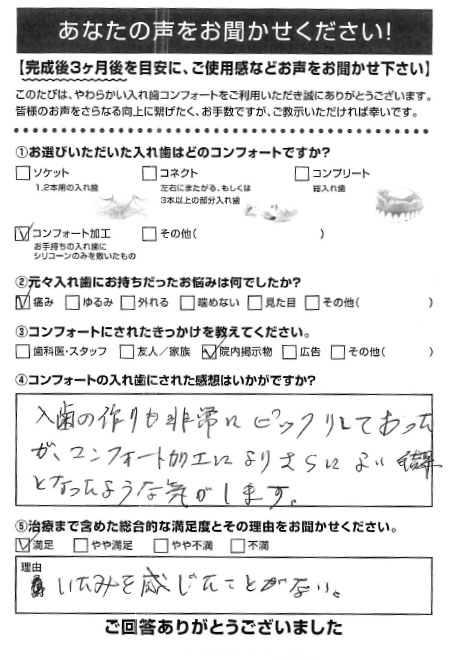 あなたの声をお聞かせください!
【完成後3ヶ月後を目安に、ご使用感などお声をお聞かせ下さい】
このたびは、やわらかい入れ歯コンフォートをご利用いただき誠にありがとうございます。
皆様のお声をさらなる向上に繋げたく、お手数ですが、ご教示いただければ幸いです。
①お選びいただいた入れ歯はどのコンフォートですか?
□ソケット □コネクト □コンプリート
1,2本用の入れ歯 左右にまたがる、もしくは 総入れ歯
3本以上の部分入れ歯
☑コンフォート加工 □その他( )
お手持ちの入れ歯に
シリコーンのみを敷いたもの
②元々入れ歯にお持ちだったお悩みは何でしたか?
☑痛み □ゆるみ □外れる □噛めない □見た目 □その他( )
③コンフォートにされたきっかけを教えてください。
□歯科医・スタッフ □友人/家族 ☑院内掲示物 □広告 □その他( )
④コンフォートの入れ歯にされた感想はいかがですか?
入歯の作りも非常にピックリしておった
が、コンフォート加工によりさらによい結果
となったような気がします。
⑤治療まで含めた総合的な満足度とその理由をお聞かせください。
☑満足 □やや満足 □やや不満 □不満
理由
いたみを感じたことがない。
ご回答ありがとうございました